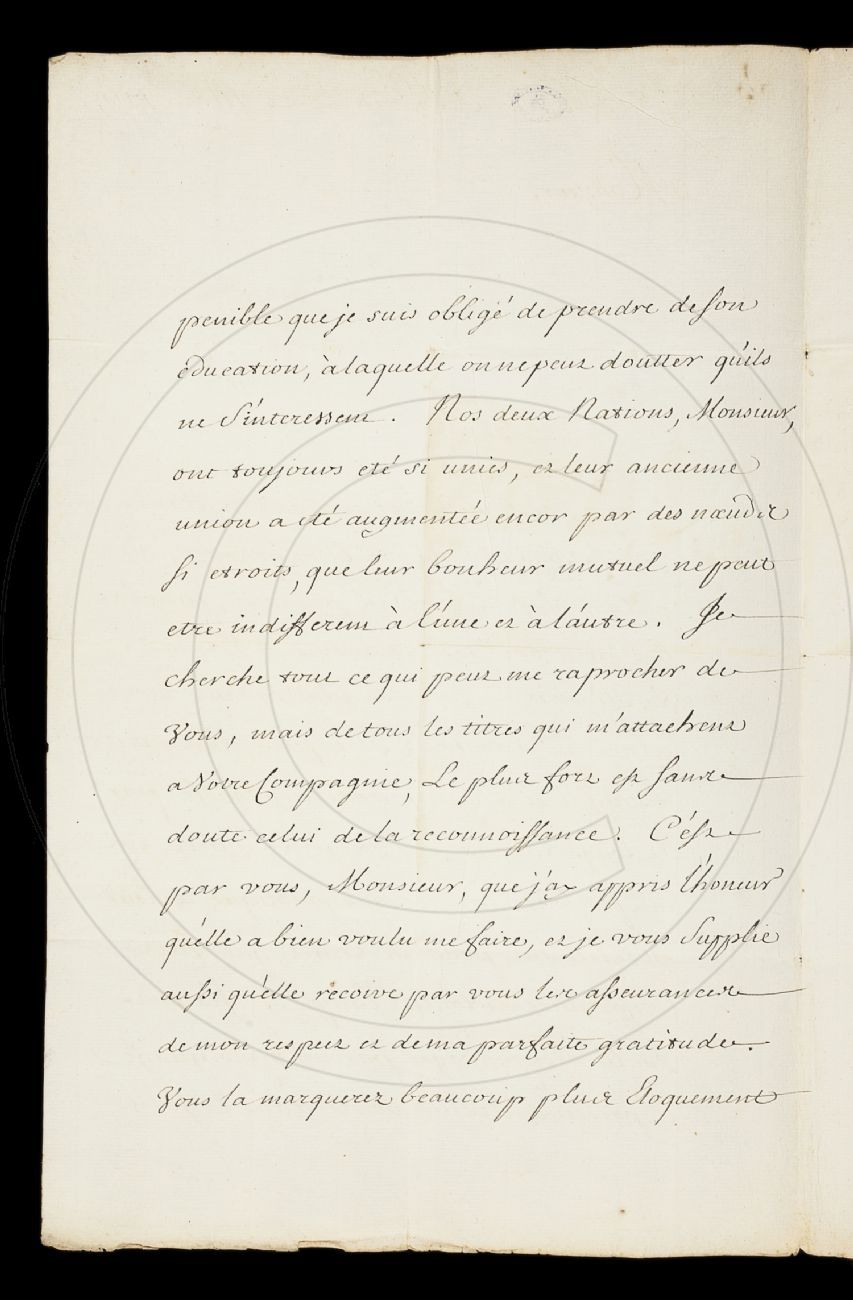 penible que je suis obligé de prendre de son
éducation, à laquelle on ne peut doutter qu'ils
ne s'interessent. Nos deux Nations, Monsieur,
ont toujours eté si unies, et leur ancienne
union a eté augmentée encor par des nœuds
si etroits, que leur bonheur mutuel ne peut
etre indifferent à l'une et à l'autre. Je
cherche tout ce qui peut me raprocher de
Vous, mais de tous les titres qui m'attachent
a Votre Compagnie, Le plus fort est sans
doute celui de la reconnoissance. C'est
par vous, Monsieur, que j'ay appris l'honeur
qu'elle a bien voulu me faire, et je vous Supplie
aussi qu'elle recoive par vous les asseurances
de mon respect et de ma parfaite gratitude.
Vous la marquerez beaucoup plus Eloquement